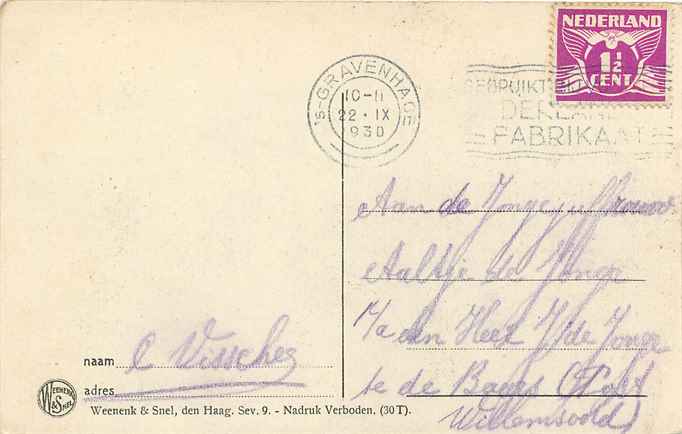 NEDERLAND
1½
CENT
's-GRAVENHAGE
10-11
22 · IX
1930
GEBRUIKT
FABRIKAAT
Aan de Jongejuffrouw
Aaltje de Jonge
p/a den Heer J. de Jonge
te de (Post
Willemsoord)
naam C Visscher
adres
WEENENK & SNEL
Weenenk & Snel, den Haag. Sev. 9. - Nadruk Verboden. (30T).